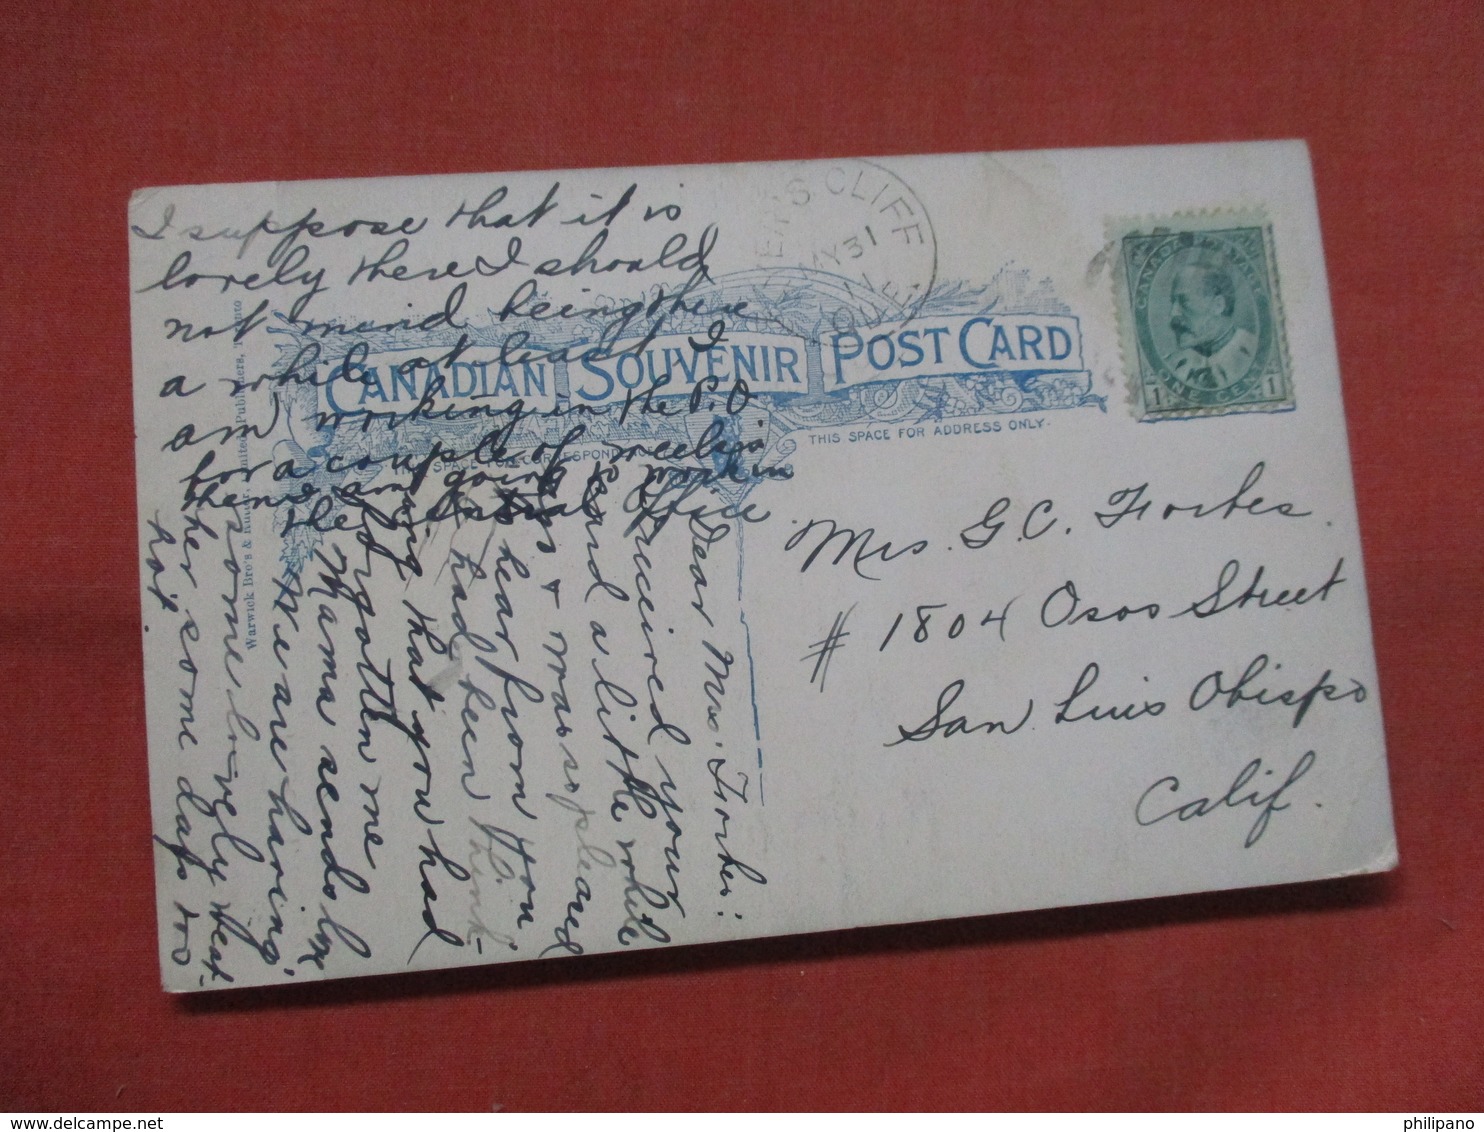 CANADIAN SOUVENIR POST CARD
THIS SPACE FOR ADDRESS ONLY.
SPACE FOR CORRESPONDENCE
Warwick Bro's & Rutter, Limited, Publishers, Toronto
'S CLIFF
MY 31
11
QUE.
CANADA POSTAGE
1 ONE CENT 1
Mrs. G. C. Forbes.
# 1804 Osos Street
San Luis Obispo
Calif.
Dear Mrs. Forbes:
I received your
card a little while
ago & was so pleased
to hear from you
had been think-
ing that you had
forgotten me
Mama sends love
We are having
some lovely weat-
her some days too
hot.
I suppose that it is
lovely there I should
not mind being there
a while at least I
am working in the P.O
for a couple of weeks
then I am going to work in
the Central office
philipano